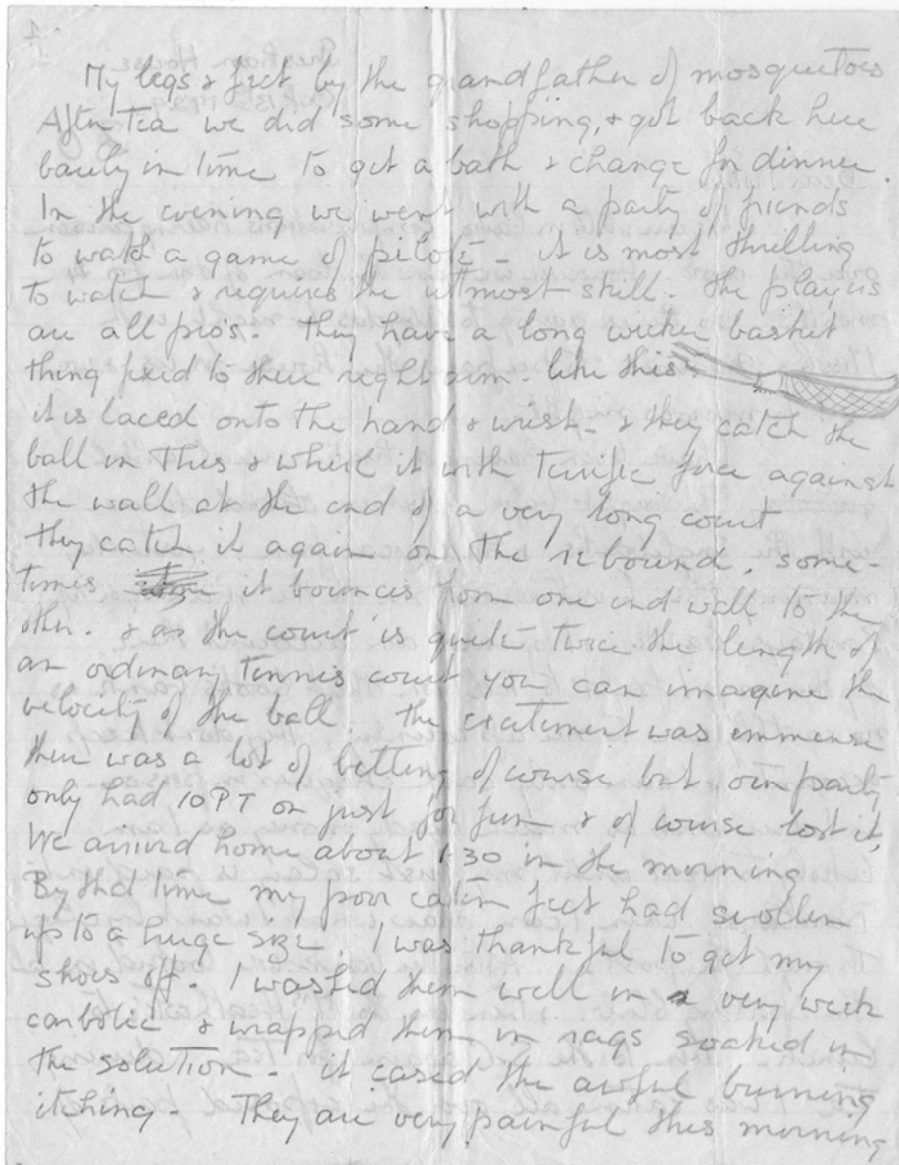 My legs & feet by the grandfather of mosquitoes
After Tea we did some shopping, & got back here
barely in time to get a bath & change for dinner.
In the evening we went with a party of friends
to watch a game of pilote - it is most thrilling
to watch & requires the utmost skill. The players
are all pro's. They have a long wicker basket
thing fixed to their right arm. like this.
it is laced onto the hand & wrist - & they catch the
ball in this & whirl it with terrific force against
the wall at the end of a very long court
They catch it again on the rebound. some-
times it bounces from one end wall to the
other. & as the court is quite twice the length of
an ordinary tennis court you can imagine the
velocity of the ball. The excitement was immense
there was a lot of betting of course but our party
only had 10 PT on just for fun & of course lost it,
We arrived home about 1.30 in the morning
By that time my poor eaten feet had swollen
up to a huge size. I was thankful to get my
shoes off. I washed them well in a very weak
carbolic & wrapped them in rags soaked in
the solution - it eased the awful burning
itching - They are very painful this morning